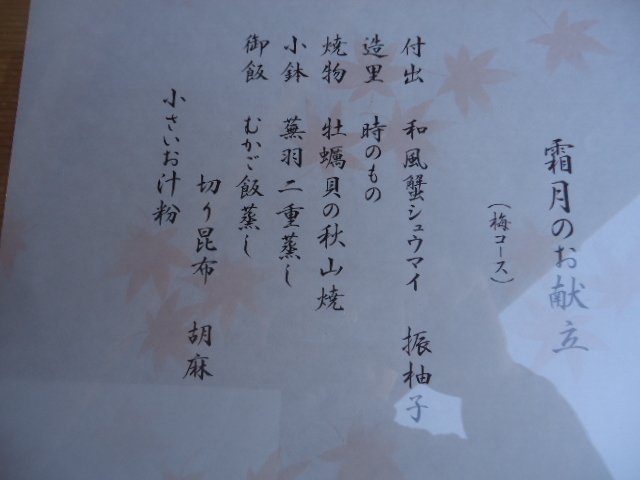 霜月のお献立
（梅コース）
付出 和風蟹シュウマイ 振柚子
造里 時のもの
焼物 牡蠣貝の秋山焼
小鉢 蕪羽二重蒸し
御飯 むかご飯蒸し
切り昆布 胡麻
小さいお汁粉